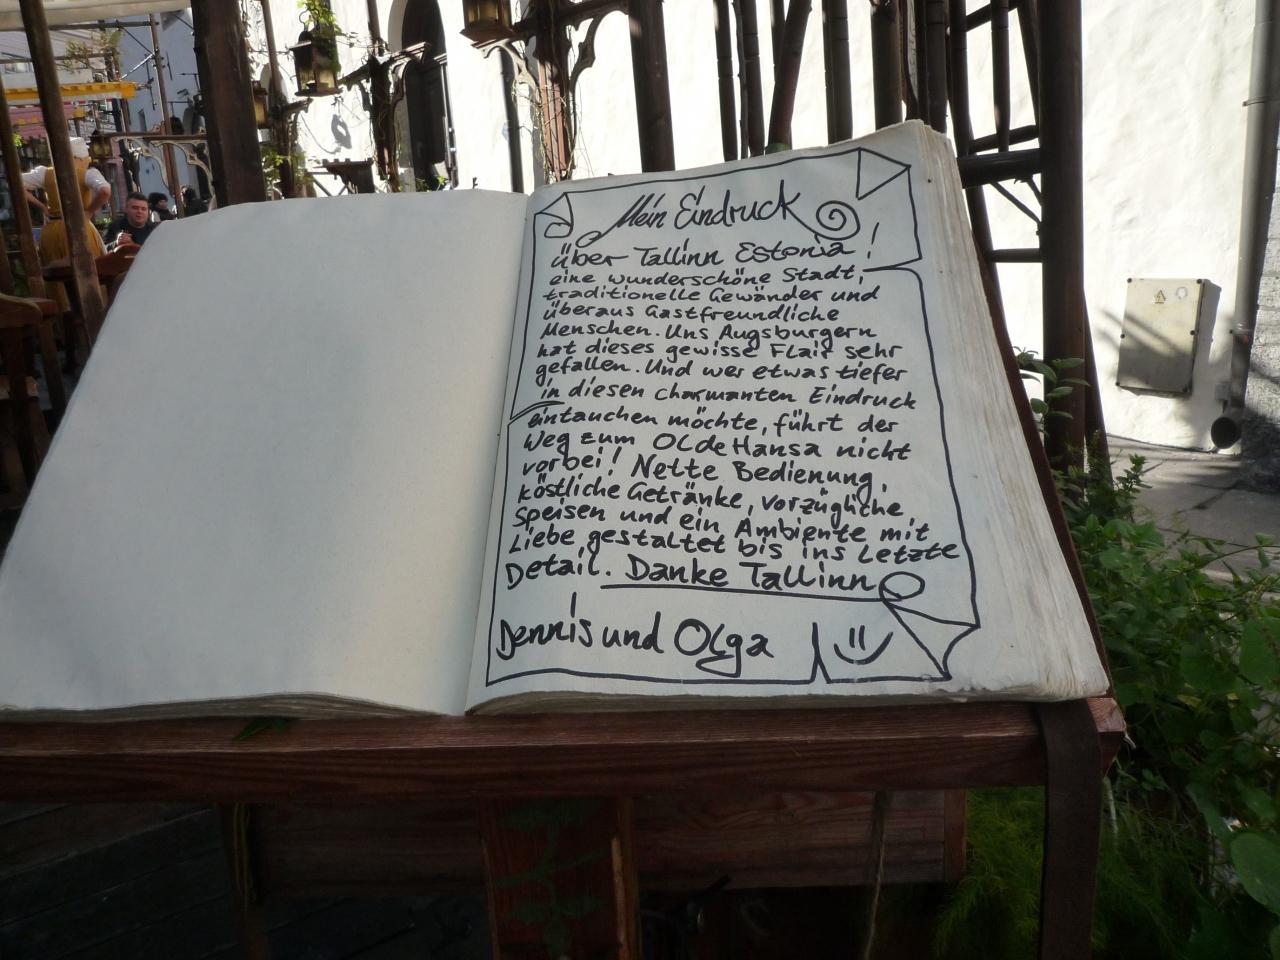 Mein Eindruck
über Tallinn Estonia!
eine wunderschöne Stadt,
traditionelle Gewänder und
überaus Gastfreundliche
Menschen. Uns Augsburgern
hat dieses gewisse Flair sehr
gefallen. Und wer etwas tiefer
in diesen charmanten Eindruck
eintauchen möchte, führt der
Weg zum OLde Hansa nicht
vorbei! Nette Bedienung,
köstliche Getränke, vorzügliche
Speisen und ein Ambiente mit
Liebe gestaltet bis ins Letzte
Detail. Danke Tallinn
Dennis und Olga